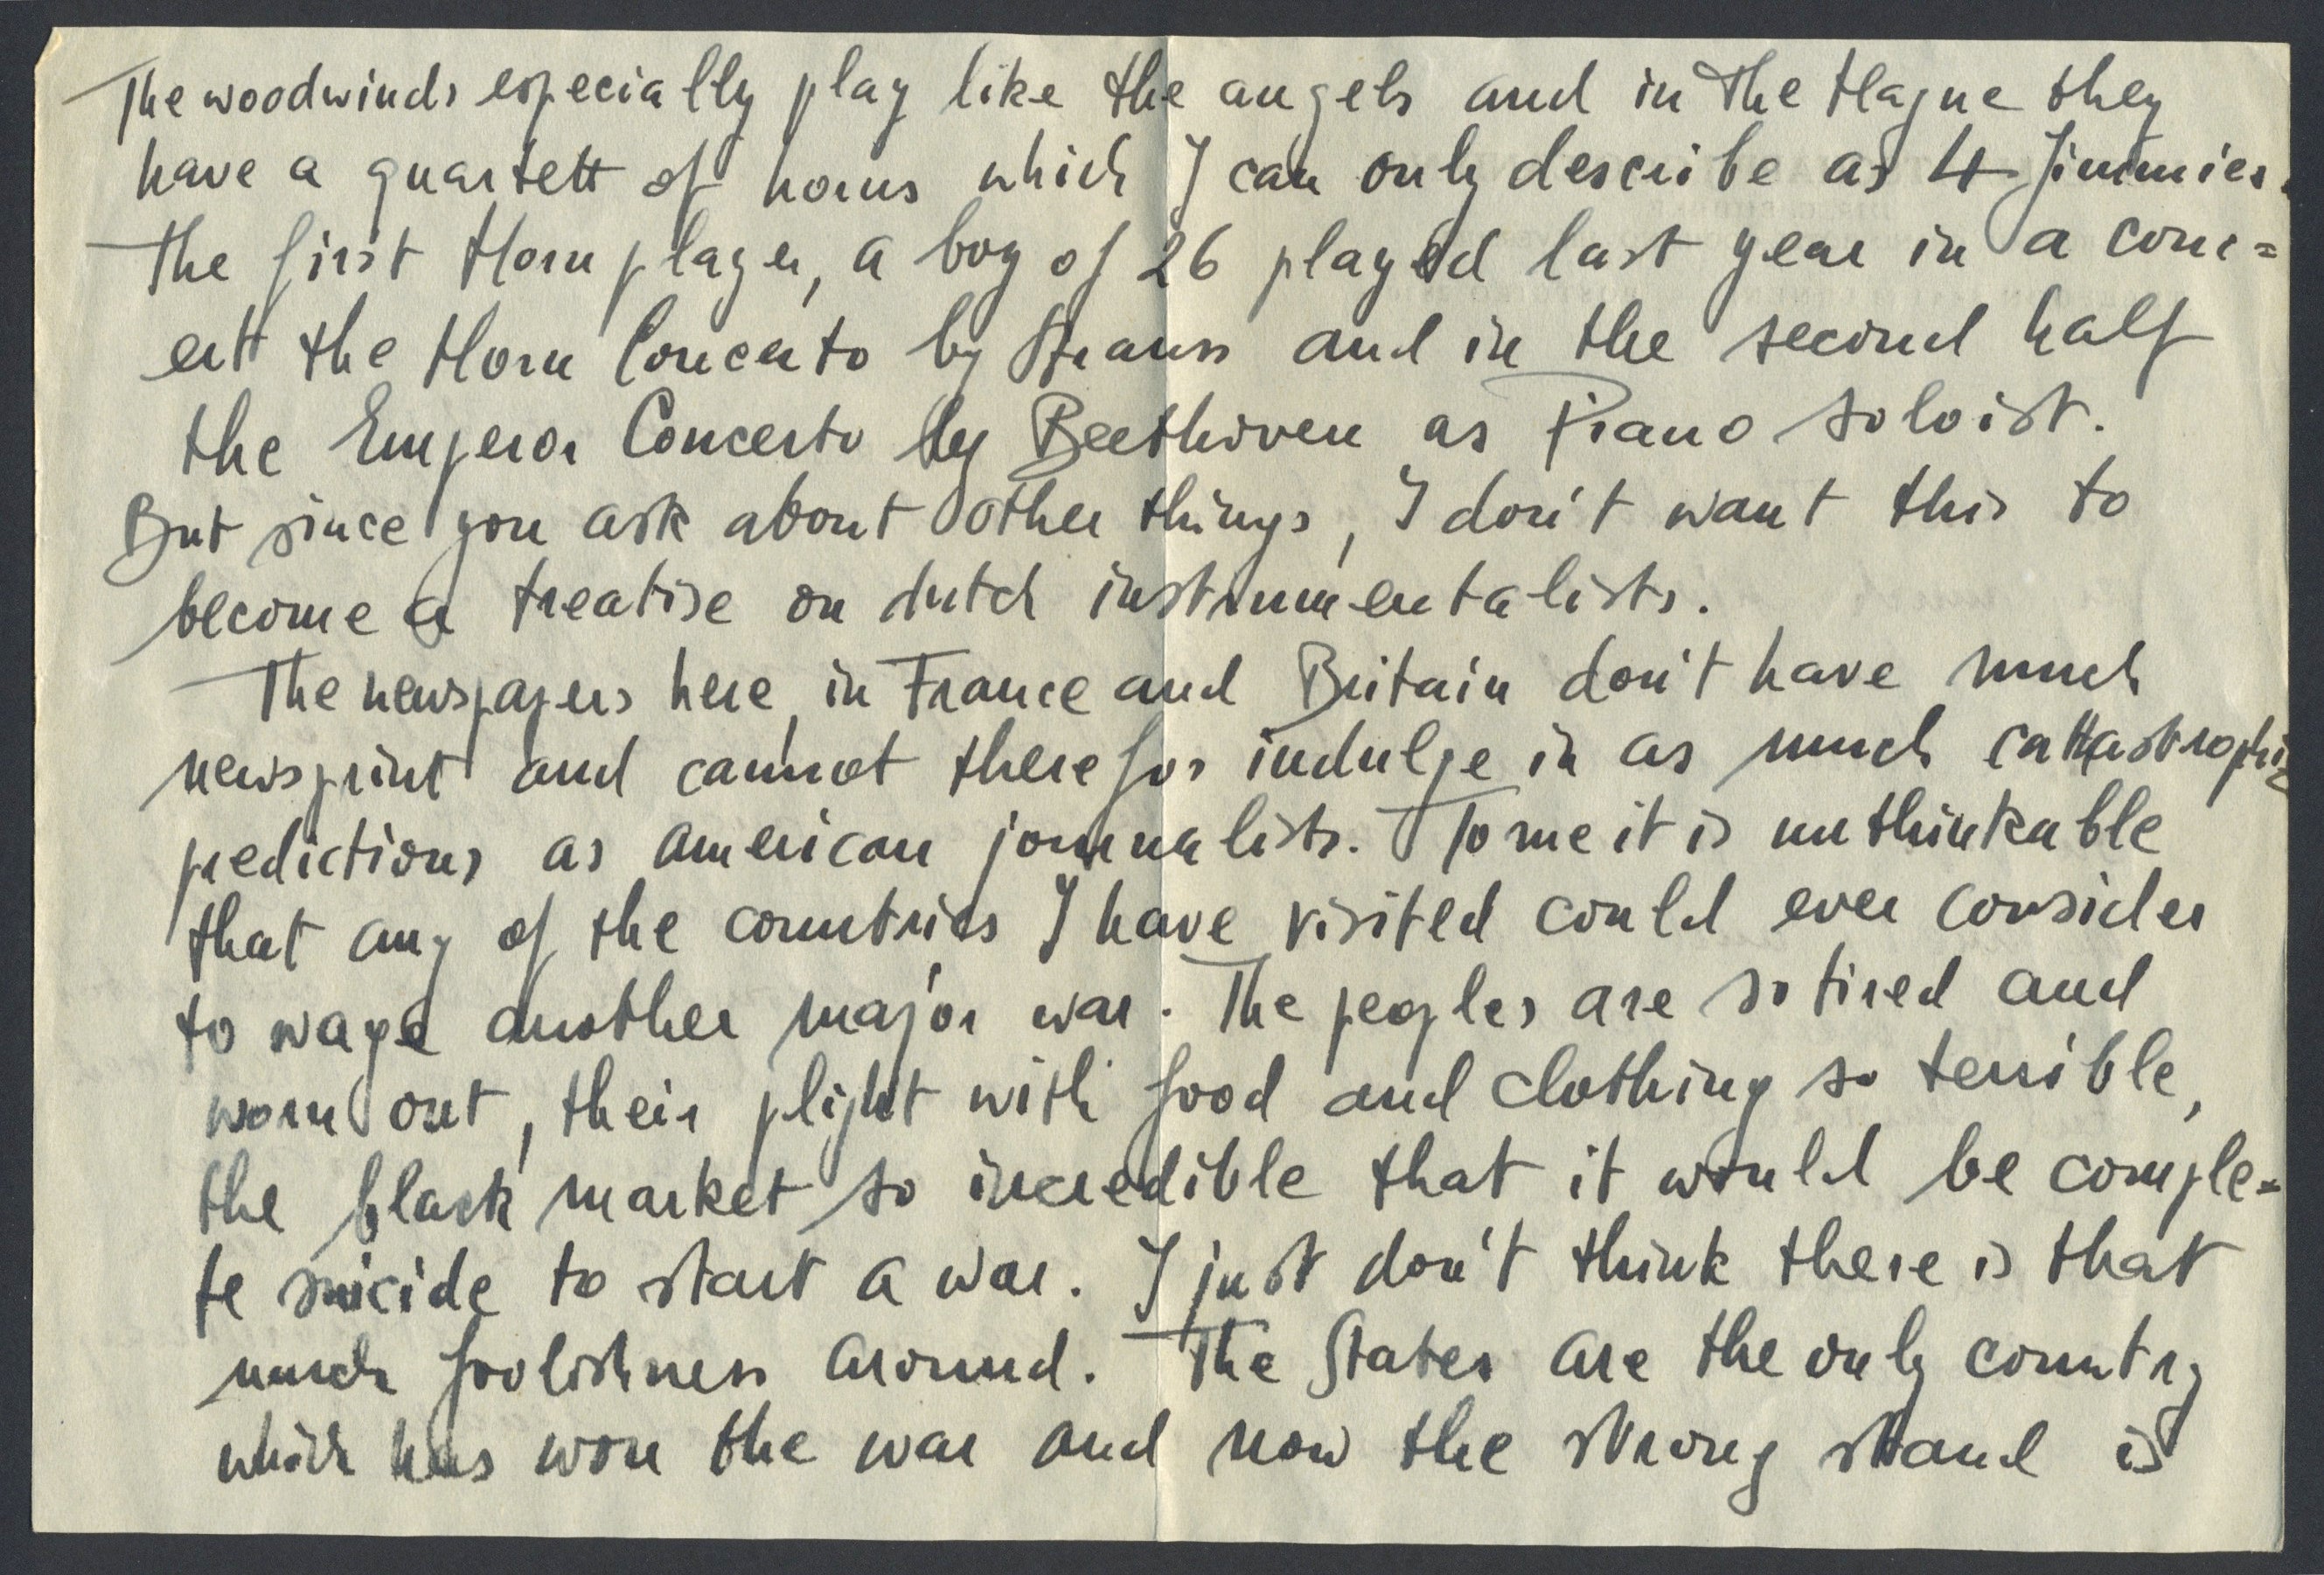 The woodwinds especially play like the angels and in The Hague they
have a quartett of horns which I can only describe as 4 Jimmies.
The first Horn player, a boy of 26 played last year in a conc=
ert the Horn Concerto by Strauss and in the second half
the Emperor Concerto by Beethoven as Piano soloist.
But since you ask about other things, I don't want this to
become a treatise on dutch instrumentalists.
The newspapers here, in France and Britain don't have much
newsprint and cannot therefor indulge in as much cattastrophic
predictions as american journalists. To me it is unthinkable
that any of the countries I have visited could ever consider
to wage another major war. The peoples are so tired and
worn out, their plight with food and clothing so terrible,
the black market so incredible that it would be comple=
te suicide to start a war. I just don't think there is that
much foolishness around. The States are the only country
which has won the war and now the strong stand is